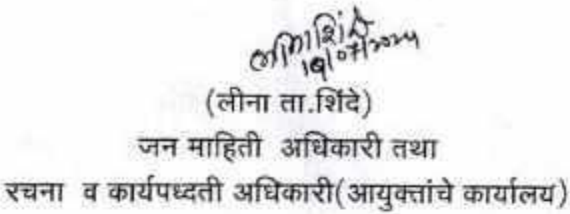 लीनाशिंदे
(लीना ता.शिंदे)
जन माहिती अधिकारी तथा
रचना व कार्यपध्दती अधिकारी(आयुक्तांचे कार्यालय)